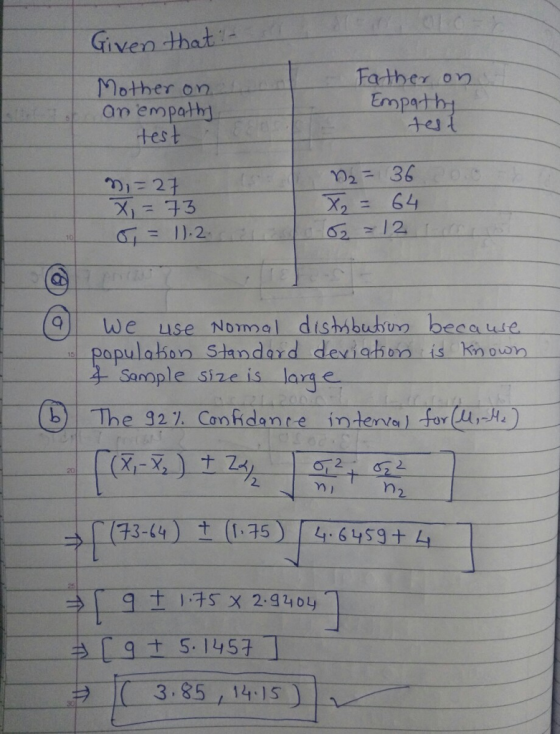 Given that :-
Mother on
an empathy
test
n₁ = 27
x̄₁ = 73
σ₁ = 11.2
Father on
Empathy
test
n₂ = 36
x̄₂ = 64
σ₂ = 12
(a)
(a) We use Normal distribution because
population Standard deviation is known
& Sample size is large
(b) The 92% Confidance interval for (μ₁-μ₂)
[(x̄₁-x̄₂) ± Zα/2 √(σ₁²/n₁ + σ₂²/n₂)]
⇒ [(73-64) ± (1.75) √(4.6459 + 4)]
⇒ [9 ± 1.75 × 2.9404]
⇒ [9 ± 5.1457]
⇒ (3.85, 14.15) ✓